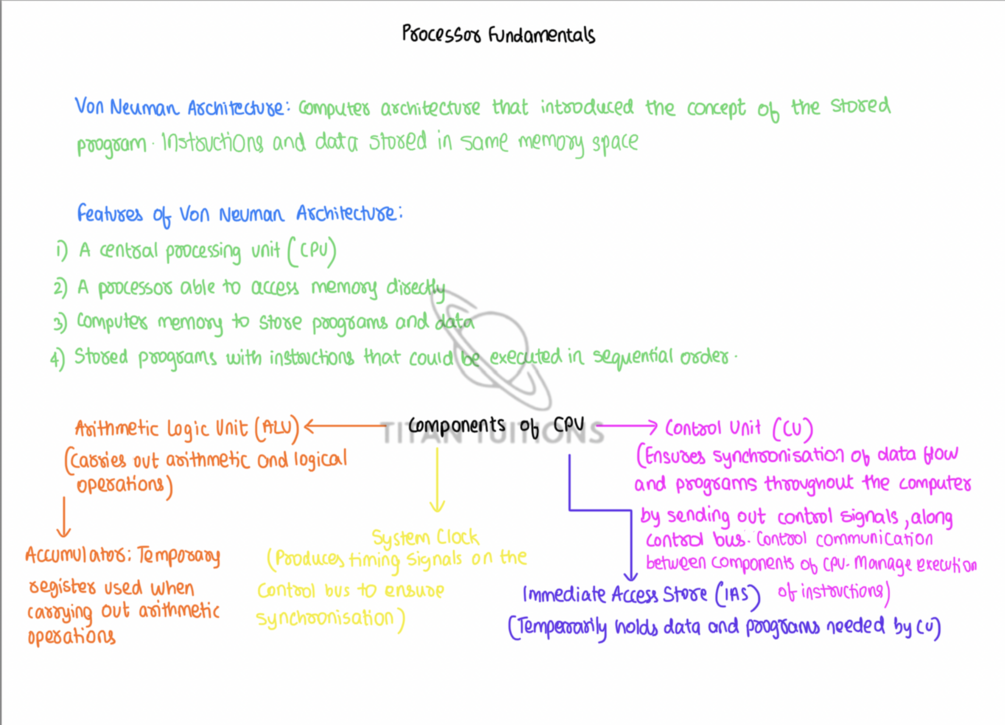 Processor Fundamentals
Von Neuman Architecture: Computer architecture that introduced the concept of the stored
program. Instructions and data stored in same memory space
Features of Von Neuman Architecture:
1) A central processing unit (CPU)
2) A processor able to access memory directly
3) Computer memory to store programs and data
4) Stored programs with instructions that could be executed in sequential order.
Components of CPU
TITAN TUITIONS
Arithmetic Logic Unit (ALU)
(Carries out arithmetic and logical
operations)
Accumulators: Temporary
register used when
carrying out arithmetic
operations
System Clock
(Produces timing signals on the
control bus to ensure
synchronisation)
Control Unit (CU)
(Ensures synchronisation of data flow
and programs throughout the computer
by sending out control signals, along
control bus. Control communication
between components of CPU. Manage execution
of instructions)
Immediate Access Store (IAS)
(Temporarily holds data and programs needed by CU)